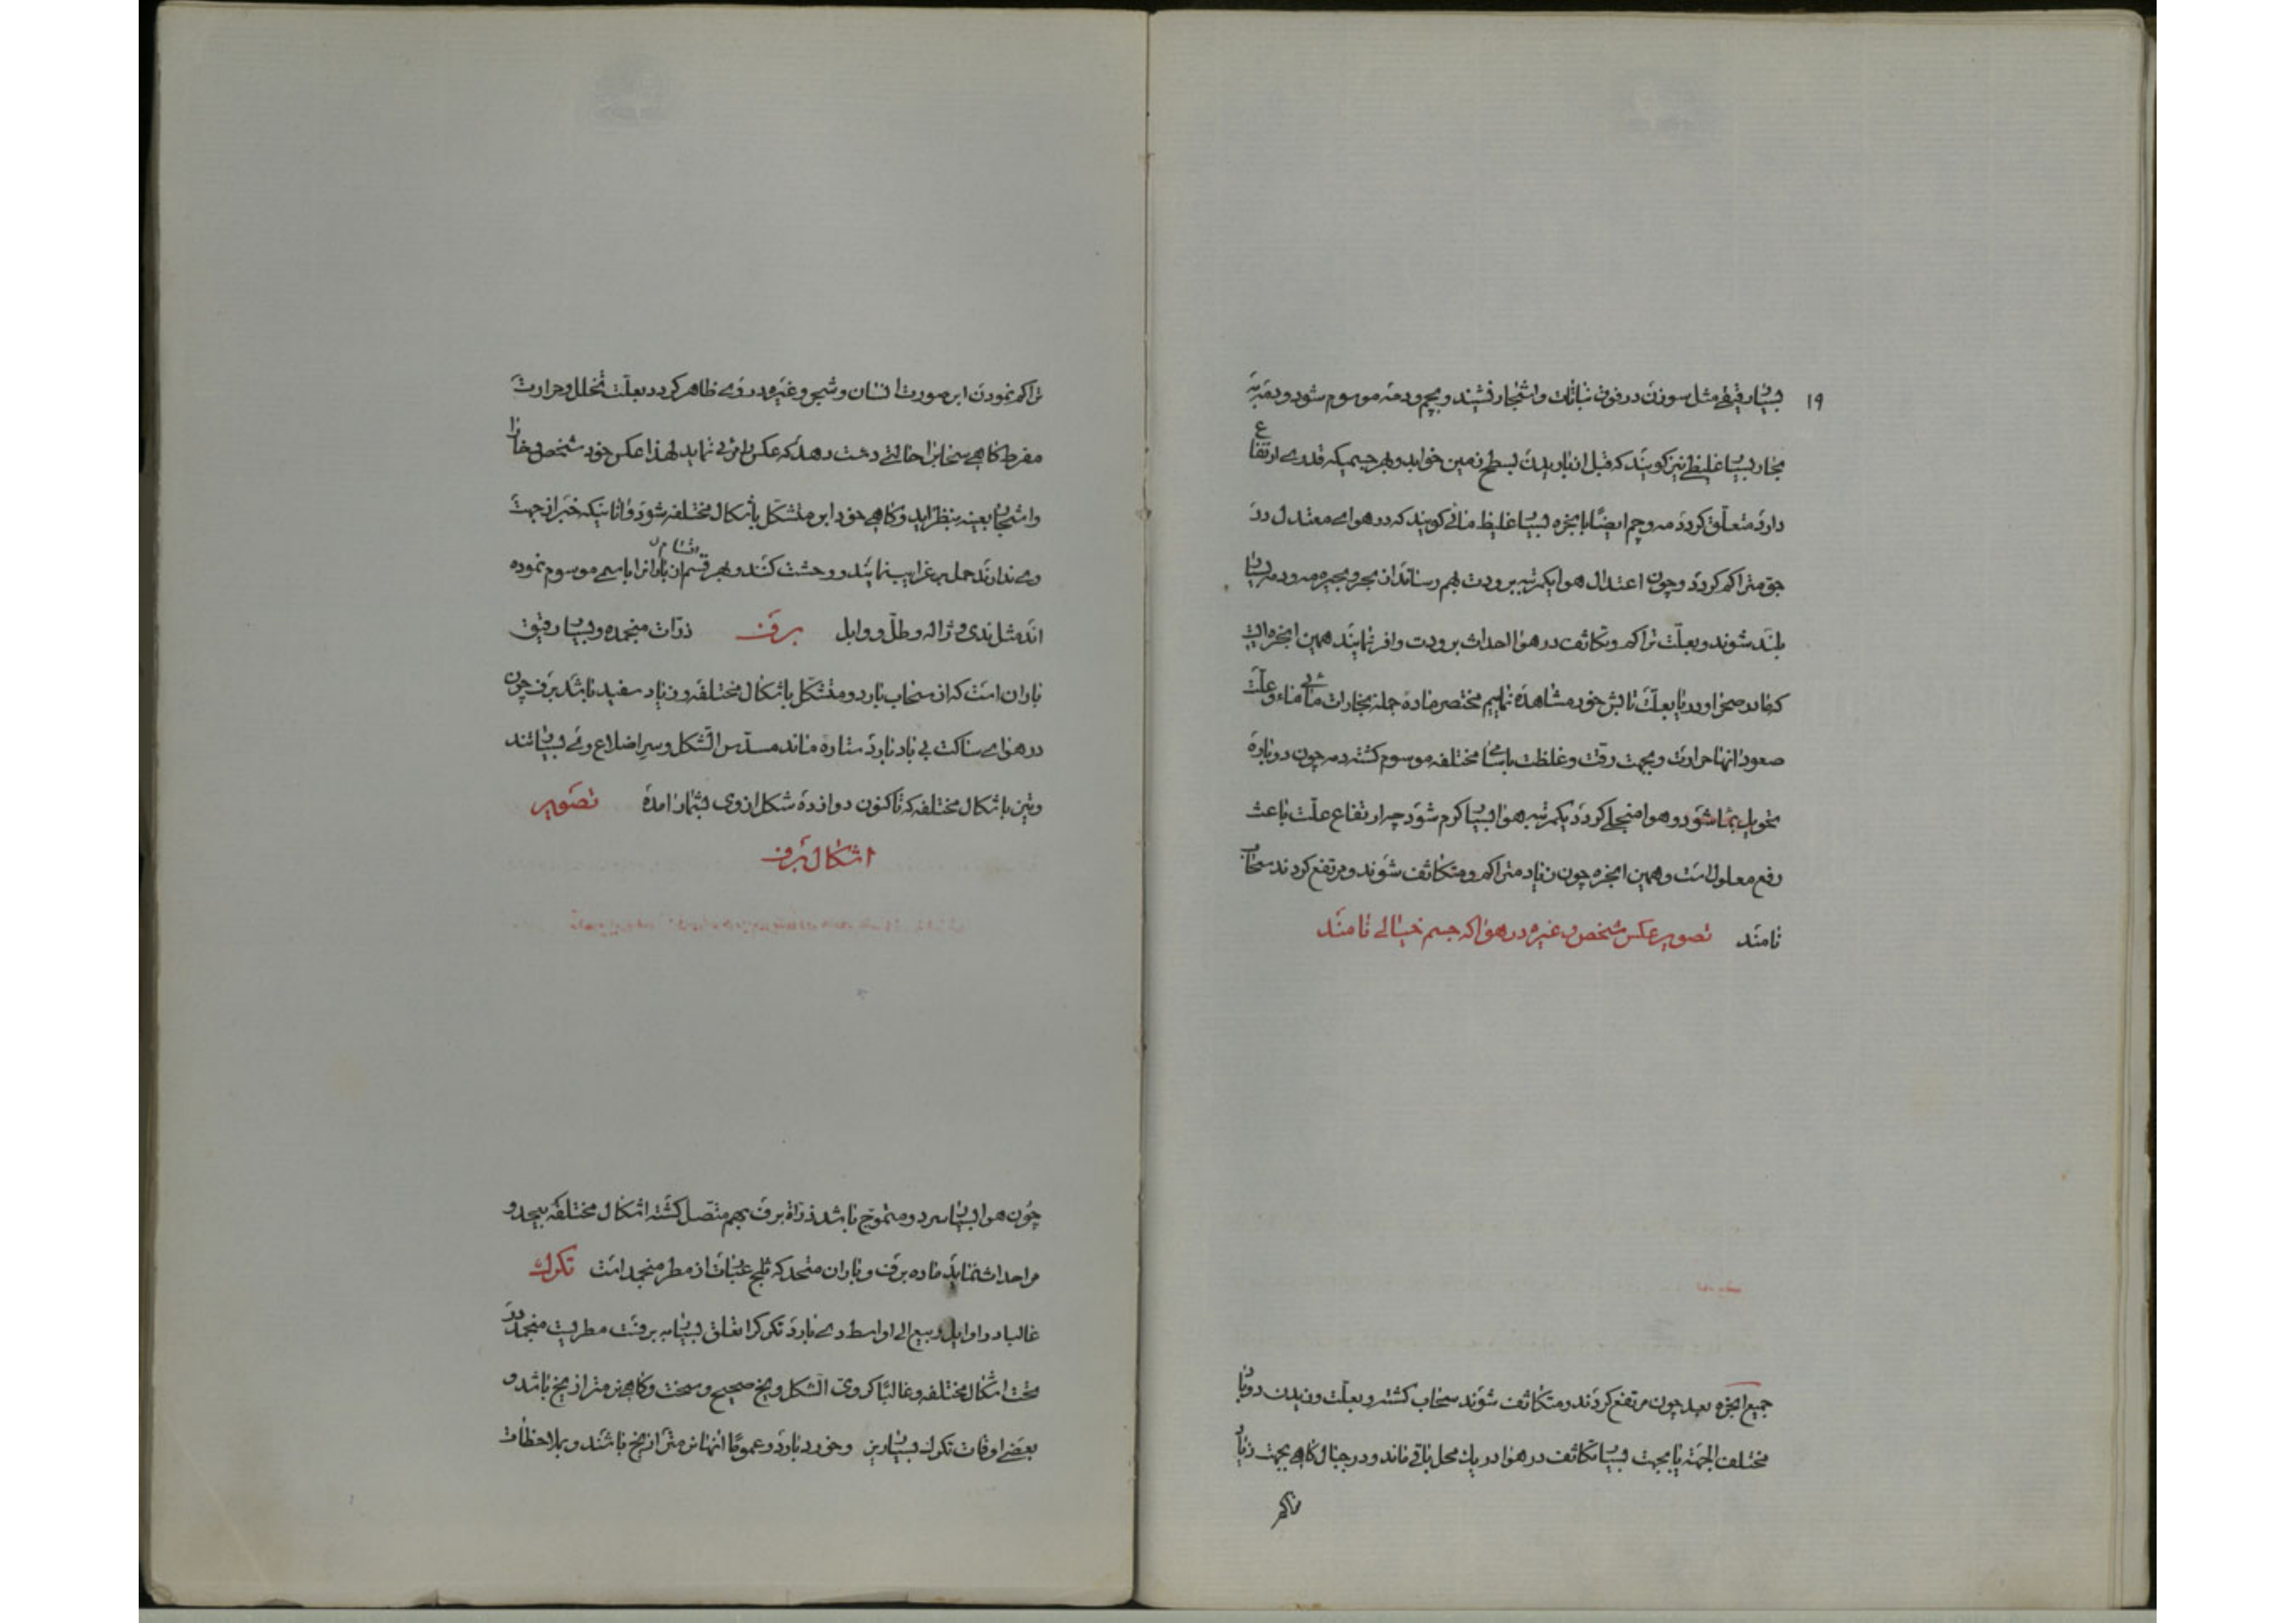 ۱۹
بسیار رقیقی مثل سوزن در فوق نباتات و اشجار نشیند و بچم و دمه موسوم شود و دمه به
بخار بسیار غلیظی نیز گویند که قبل از باریدن بسطح زمین خوابد و بهر جسمیکه قدری ارتفاع
دارد متعلق گردد مه و چم ایضا بابخره بسیار غلیظ مائی گویند که در هوای معتدل در
جو متراکم گردد و چون اعتدال هوا یکمرتبه ببرودت بهم رساند از بحر و بحیره مه و دمه بسیار
بلند شوند و بعلت تراکم و تکاثف در هوا احداث برودت وافر نمایند همین ابخره ایست
که ما در صحرا و دریا بعلت تابش خور مشاهده نمائیم مختصر ماده جمله بخارات مائی ماء و علت
صعود انها حرارت و بجهت رقت و غلظت باسامی مختلفه موسوم گشته دمه چون دوباره
تحویل بماء شود و هوا منجلی گردد یکمرتبه هوا بسیار گرم شود چه ارتفاع علت باعث
رفع معلول است و همین ابخره چون زیاد متراکم و متکاثف شوند و مرتفع گردند سحاب
نامند تصویر عکس شخص و غیره در هوا که جسم خیالی نامند
جمیع ابخره بعد چون مرتفع گردند و متکاثف شوند سحاب گشته و بعلت وزیدن دو باد
مختلف الجهة یا بجهت بسیار تکاثف در هوا در یك محل باقی ماند و در جبال گاهی بجهت زیاد
تراکم
تراکم نمودن ابر صورت انسان و شجر و غیره در وی ظاهر گردد بعلت تخلل و حرارت
مفرط گاهی سحاب را حالتی دست دهد که عکس را مرئی نماید لهذا عکس خود شخص و
واشجار بعینه بنظر اید و گاهی خود ابر متشکل باشکال مختلفه شود و انانیکه خبر از جهت
وی ندارند حمل بر غرایب نمایند و وحشت کنند و بهر قسم از اقسام باران را باسمی موسوم نموده
اند مثل ندی و ژاله و طل و وابل برف ذرات منجمده و بسیار رقیق
باران است که از سحاب بارد و متشکل باشکال مختلفه و زیاد سفید باشد برف چون
در هوای ساکت بی باد بارد ستاره مانند مسدس الشکل و سر اضلاع وی بسیار تند
وتیز باشکال مختلفه که تاکنون دوازده شکل از وی بشمار امده تصویر
اشکال برف
چون هوا بسیار سرد و متموج باشد ذراة برف بهم متصل گشته اشکال مختلفه بیحد و
مر احداث نماید ماده برف و باران متحد که ثلج عبارت از مطر منجمد است تگرك
غالبا در اوایل ربیع الی اواسط وی بارد تگرك را تعلق بسیار به برفست مطریست منجمد در
تحت اشکال مختلفه و غالبا کروی الشکل و یخ صحیح و سخت و گاهی نرمتر از یخ باشد و
بعضی اوقات تگرك بسیار ریز و خورد بارد و عموما انها نرمتر از یخ باشند و بملاحظات